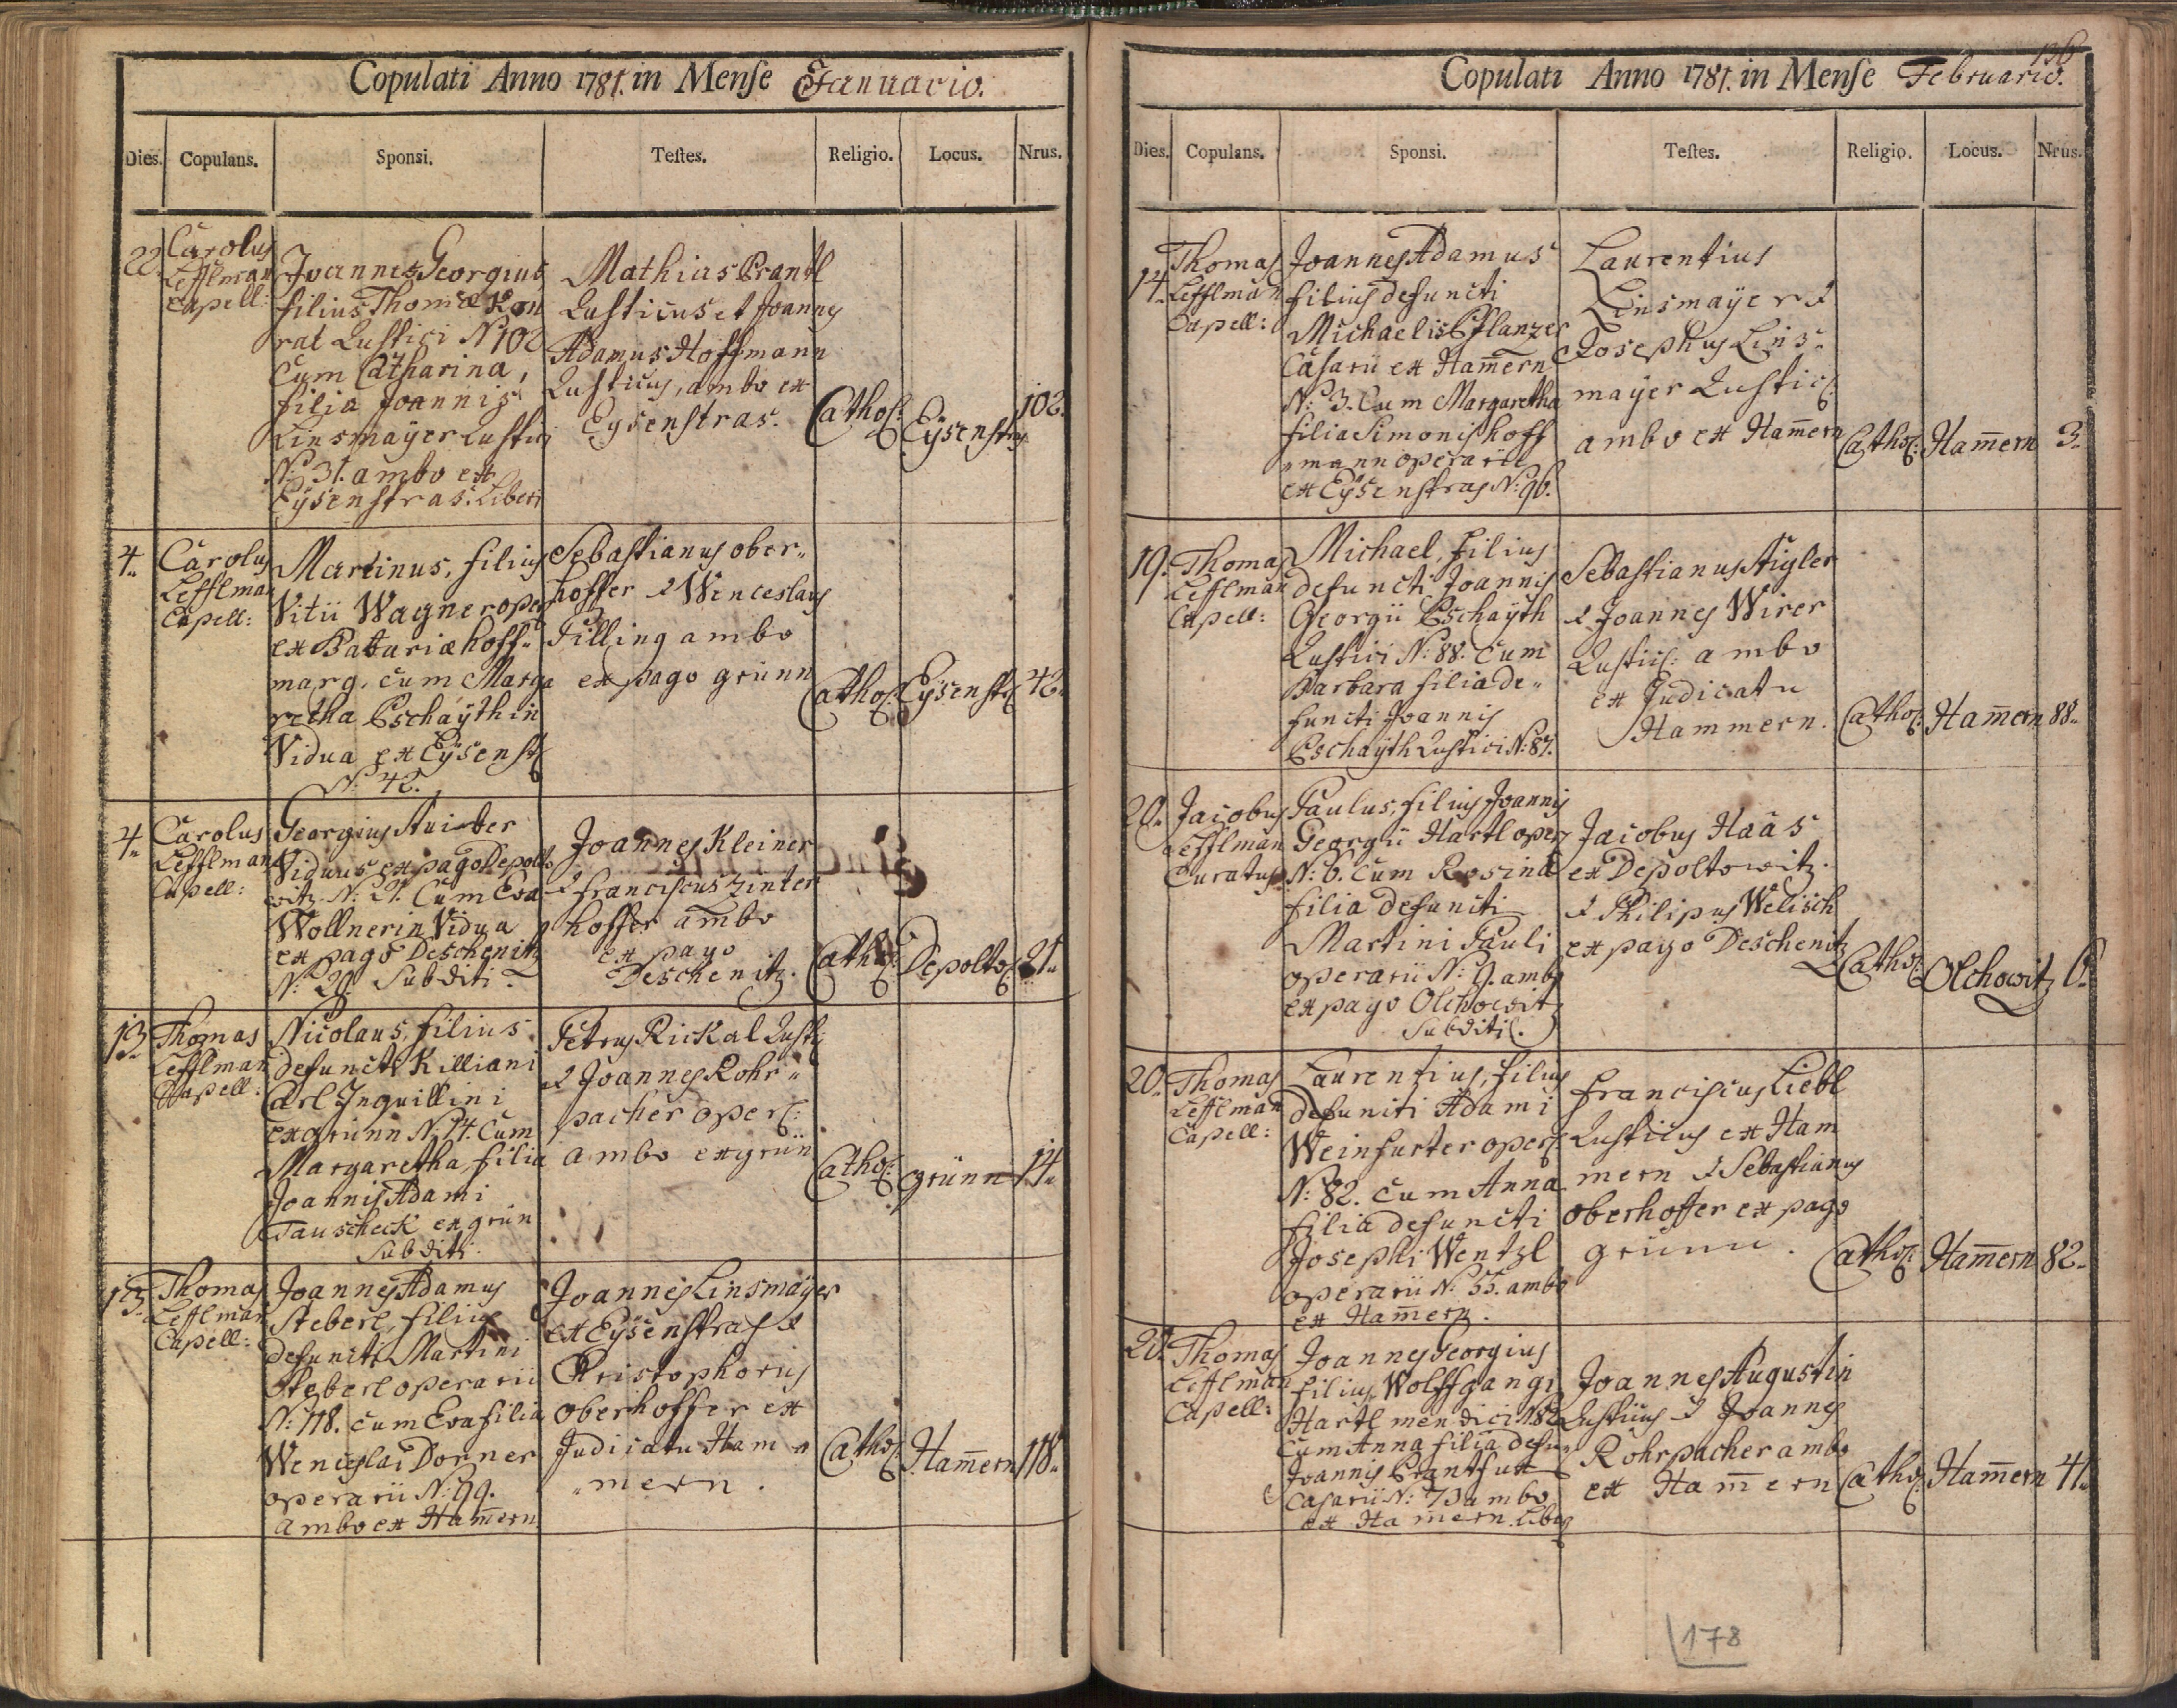 Copulati Anno 1781. in Mense Januario.
Dies. Copulans. Sponsi. Testes. Religio. Locus. Nrus.
22.
Carolus
Lefflman
Capell:
Joannes Georgius
filius Thomæ Kon
rat Rustici N 102
Cum Catharina,
filia Joannis
Linsmaÿer Rustici
N: 31. ambo ex
Eÿsenstras. Liberi
Mathias Prantl
Rusticus et Joannes
Adamus Hoffmann
Rusticus, ambo ex
Eysenstras.
Cathol:
Eÿsenstras
102.
4.
Carolus
Lefflman
Capell:
Martinus, filius
Vitii Wagner oper
ex Bavariæ hoff-
marg. cum Marga
retha Pschaÿthin
Vidua ex Eÿsenst
N: 42.
Sebastianus ober-
hoffer & Wenceslaus
Zilling ambo
ex pago grünn
Cathol:
Eÿsenst
42.
4.
Carolus
Lefflman
Capell:
Georgius Stuiber
Viduus ex pago Depolto
witz N: 21. Cum Eva
Wollnerin Vidua
ex pago Deschenitz
N: 20. Subditi.
Joannes Kleiner
& franciscus Zinter
hoffer ambo
ex pago
Deschenitz.
Cathol:
Depolto
21.
13.
Thomas
Lefflman
Capell:
Nicolaus, filius
defuncti Killiani
Carl Inquillini
ex grünn N: 14. Cum
Margaretha, filia
Joannis Adami
Tauscheck ex grün
Subditi.
Petrus Rickal Rusti
& Joannes Rohr-
pacher oper:
ambo ex grün
Cathol:
grünn
14.
13.
Thomas
Lefflman
Capell:
Joannes Adamus
Steberl, filius
defuncti Martini
Steberl operarii
N: 118. cum Eva filia
Wenceslai Dorner
operarii N: 99.
ambo ex Ham̄ern
Joannes Linsmaÿer
ex Eÿsenstras &
Christophorus
oberhoffer ex
Judicatu Ham-
mern.
Cathol:
Ham̄ern
118.
136
Copulati Anno 1781. in Mense Februario.
Dies. Copulans. Sponsi. Testes. Religio. Locus. Nrus.
14.
Thomas
Lefflman
Capell:
Joannes Adamus
filius defuncti
Michaelis Pflanzer
Casarii ex Ham̄ern
N: 3. Cum Margaretha
filia Simonis hoff
mann operarii
ex Eÿsenstras N: 96.
Laurentius
Linsmaÿer &
Josephus Lins-
mayer Rustic:
ambo ex Ham̄ern
Cathol:
Ham̄ern
3.
19.
Thomas
Lefflman
Capell:
Michael, filius
defuncti Joannis
Georgii Pschaÿth
Rustici N: 88. Cum
Barbara filia de-
functi Joannis
Pschaÿth Rustici N: 87.
Sebastianus Stigler
& Joannes Wirer
Rustic: ambo
ex Judicatu
Hammern.
Cathol:
Ham̄ern
88.
20.
Jacobus
Lefflman
Curatus
Paulus, filius Joannis
Georgii Hartl oper
N: 6. Cum Rosina
filia defuncti
Martini Pauli
operarii N: 9. ambo
ex pago Olchowitz
Subditi.
Jacobus Haas
ex Depoltowitz.
& Philipus Welisch
ex pago Deschenitz
Cathol:
Olchowitz
6.
20.
Thomas
Lefflman
Capell:
Laurentius, filius
defuncti Adami
Weinfurter oper:
N: 82. cum Anna
filia defuncti
Josephi Wentzl
operarii N: 55. ambo
ex Ham̄ern.
franciscus Liebl
Rusticus ex Ham
mern & Sebastianus
oberhoffer ex pago
grünn.
Cathol:
Ham̄ern
82.
20.
Thomas
Lefflman
Capell:
Joannes Georgius
filius Wolffgangi
Hartl mendici N 82
Cum Anna filia defu-
Joannis
Casarii N: 73 ambo
ex Hamern. Liberi
Joannes Augustin
Rusticus & Joannes
Rohrpacher ambo
ex Ham̄ern
Cathol:
Ham̄ern
41.
178